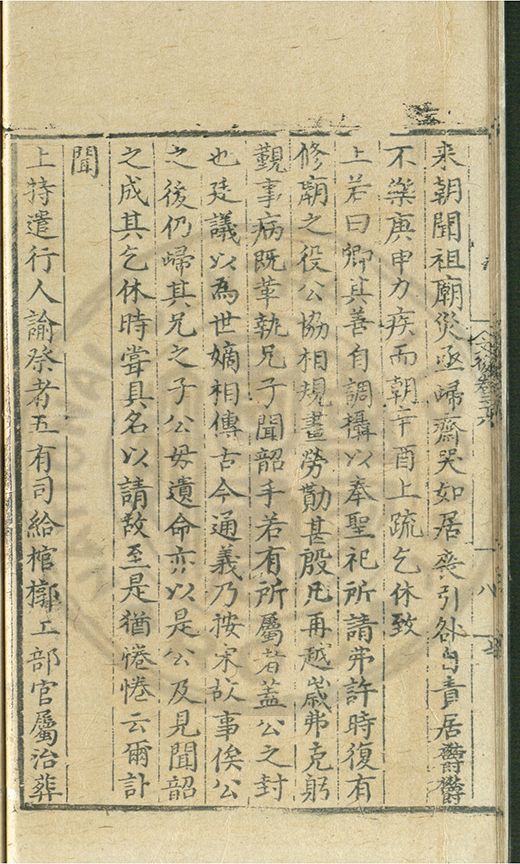 来朝聞祖廟災亟歸齋哭如居喪引咎自責居欝欝
不樂庚申力疾而朝辛酉上疏乞休致
上若曰卿其善自調攝以奉聖祀所請弗許時復有
修廟之役公協相規畫勞勩甚殷凡再越嵗弗克躬
覲事病既革執兄子聞韶手若有所屬者蓋公之封
也廷議以為世嫡相傳古今通義乃按宋故事俟公
之後仍歸其兄之子公毋遺命亦以是公及見聞韶
之成其乞休時嘗具名以請故至是猶惓惓云爾訃
聞
上特遣行人諭祭者五有司給棺槨工部官屬治葬